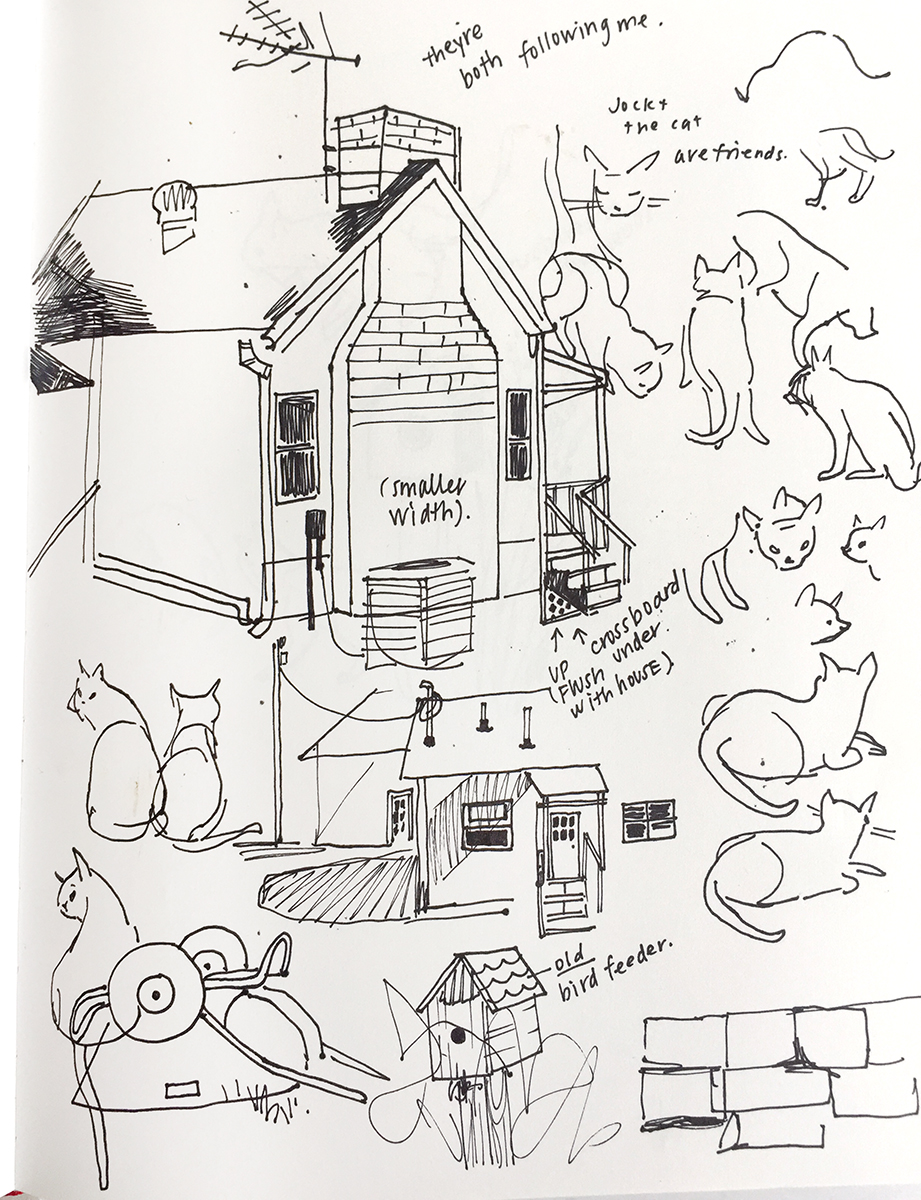 theyre
both following me.
Jock +
the cat
are friends.
(smaller
width).
crossboard
under
UP
(FlUSH
with hoUSE)
old
bird feeder.